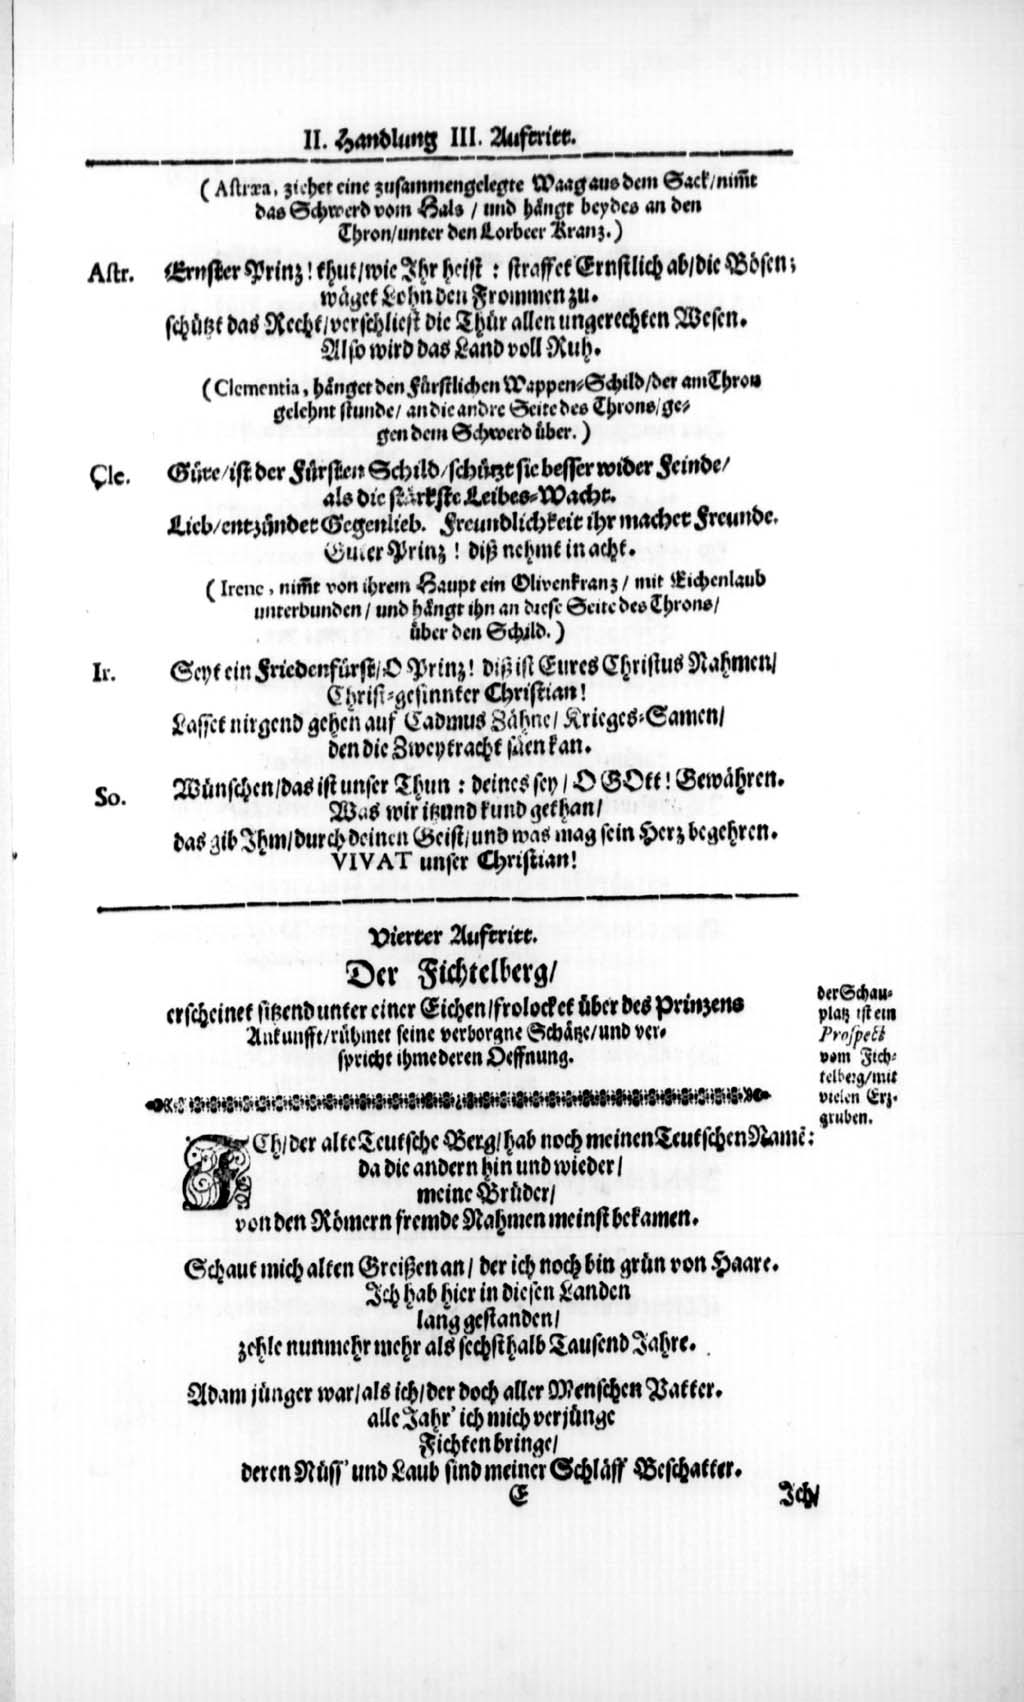 II. Handlung III. Auftritt.
( Astræa, ziehet eine zusammengelegte Waag aus dem Sack/nim̃t
das Schwerd vom Hals / und hängt beydes an den
Thron/unter den Lorbeer Kranz.)
Astr. Ernster Prinz! thut/wie Ihr heist : straffet Ernstlich ab/die Bösen;
wäget Lohn den Frommen zu.
schützt das Recht/verschliest die Thür allen ungerechten Wesen.
Also wird das Land voll Ruh.
(Clementia, hänget den Fürstlichen Wappen-Schild/der am Thron
gelehnt stunde/ an die andre Seite des Throns/ge-
gen dem Schwerd über.)
Cle. Güte/ist der Fürsten Schild/schützt sie besser wider Feinde/
als die stärkste Leibes-Wacht.
Lieb/entzündet Gegenlieb. Freundlichkeit ihr machet Freunde.
Guter Prinz ! diß nehmt in acht.
( Irene, nim̃t von ihrem Haupt ein Olivenkranz / mit Eichenlaub
unterbunden / und hängt ihn an diese Seite des Throns/
über den Schild.)
Ir. Seyt ein Friedenfürst/O Prinz! diß ist Eures Christus Nahmen/
Christ-gesinnter Christian!
Lasset nirgend gehen auf Cadmus Zähne/ Krieges-Samen/
den die Zweytracht säen kan.
So. Wünschen/das ist unser Thun : deines sey / O GOtt! Gewähren.
Was wir itzund kund gethan/
das gib Ihm/durch deinen Geist/und was mag sein Herz begehren.
VIVAT unser Christian!
Vierter Auftritt.
Der Fichtelberg/
erscheinet sitzend unter einer Eichen/frolocket über des Prinzens
Ankunfft/rühmet seine verborgne Schätze/und ver-
spricht ihme deren Oeffnung.
der Schau-
platz ist ein
Prospect
vom Fich-
telberg/mit
vielen Erz-
gruben.
ICh/der alte Teutsche Berg/hab noch meinen Teutschen Namē:
da die andern hin und wieder/
meine Brüder/
von den Römern fremde Nahmen meinst bekamen.
Schaut mich alten Greißen an/ der ich noch bin grün von Haare.
Ich hab hier in diesen Landen
lang gestanden/
zehle nunmehr mehr als sechsthalb Tausend Jahre.
Adam jünger war/als ich/der doch aller Menschen Vatter.
alle Jahr' ich mich verjünge
Fichten bringe/
deren Nüss' und Laub sind meiner Schläff Beschatter.
E
Ich/